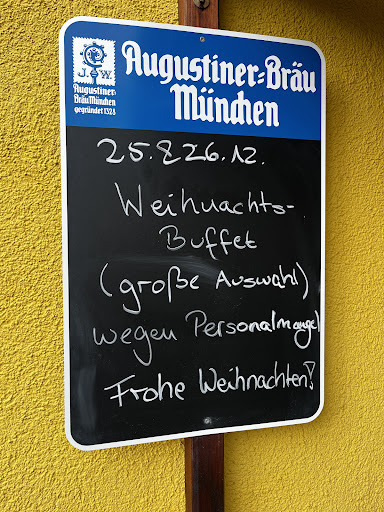 J.W.
Augustiner-
Bräu München
gegründet 1328
Augustiner-Bräu
München
25.&26.12.
Weihnachts-
Buffet
(große Auswahl)
wegen Personalmangel
Frohe Weihnachten!